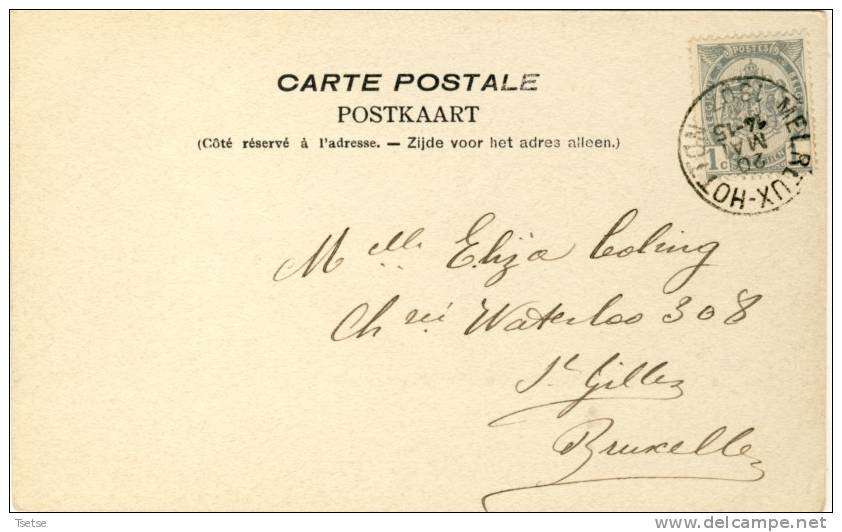 CARTE POSTALE
POSTKAART
(Côté réservé à l'adresse. — Zijde voor het adres alleen.)
POSTES
1 C
MELREUX-HOTTON
20 MAI
16-15
Melle Eliza Coling
Chée Waterloo 308
St Gilles
Bruxelles
Tsetse
delcampe.net